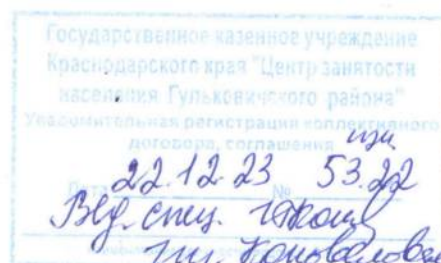 Государственное казенное учреждение
Краснодарского края "Центр занятости
населения Гулькевичского района"
Уведомительная регистрация коллективного
договора, соглашения
Дата 22.12.23 № 53.22
Вед. спец.
Коновалова